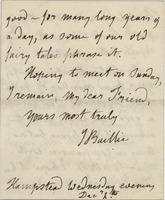 good — for many long years &
a day, as some of our old
fairy tales phrase it.
Hoping to meet on Sunday,
I remain, my dear Friend,
yours most truly
J Baillie
Hampstead Wednesday evening
Dec